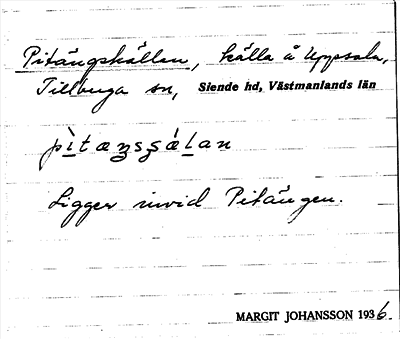 Pitängskällan, källa å Uppsala,
Tillberga sn, Siende hd, Västmanlands län
Ligger invid Pitängen.
MARGIT JOHANSSON 1936.